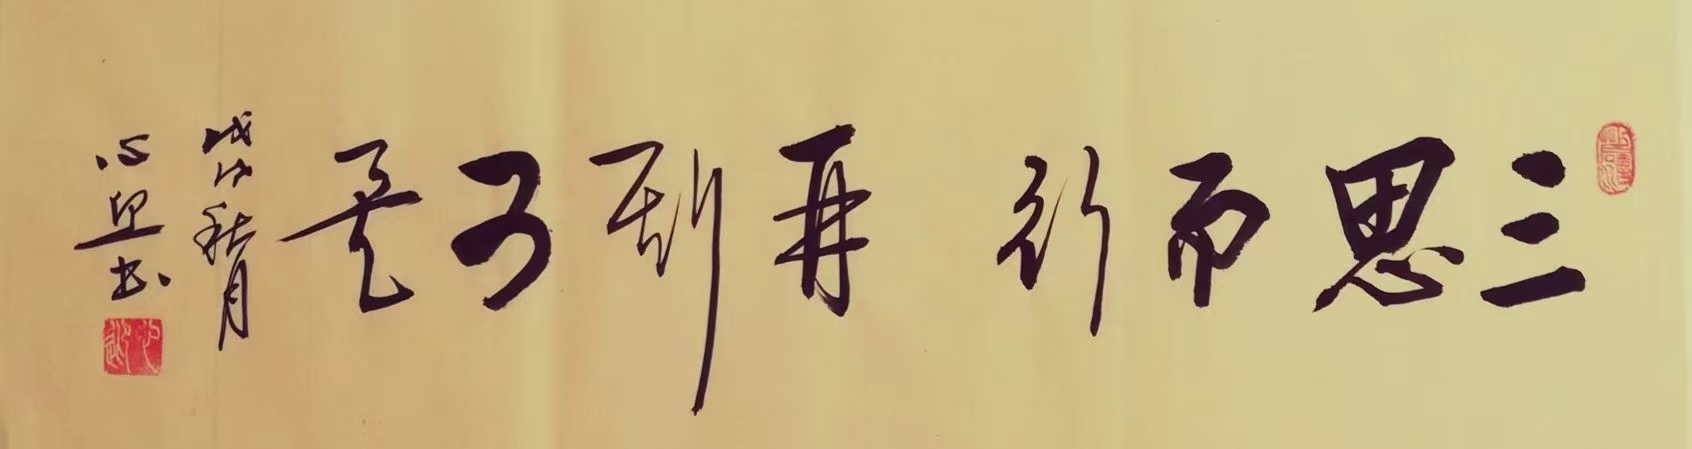 三思而行 再斯可矣
戊戌秋月
心迎书